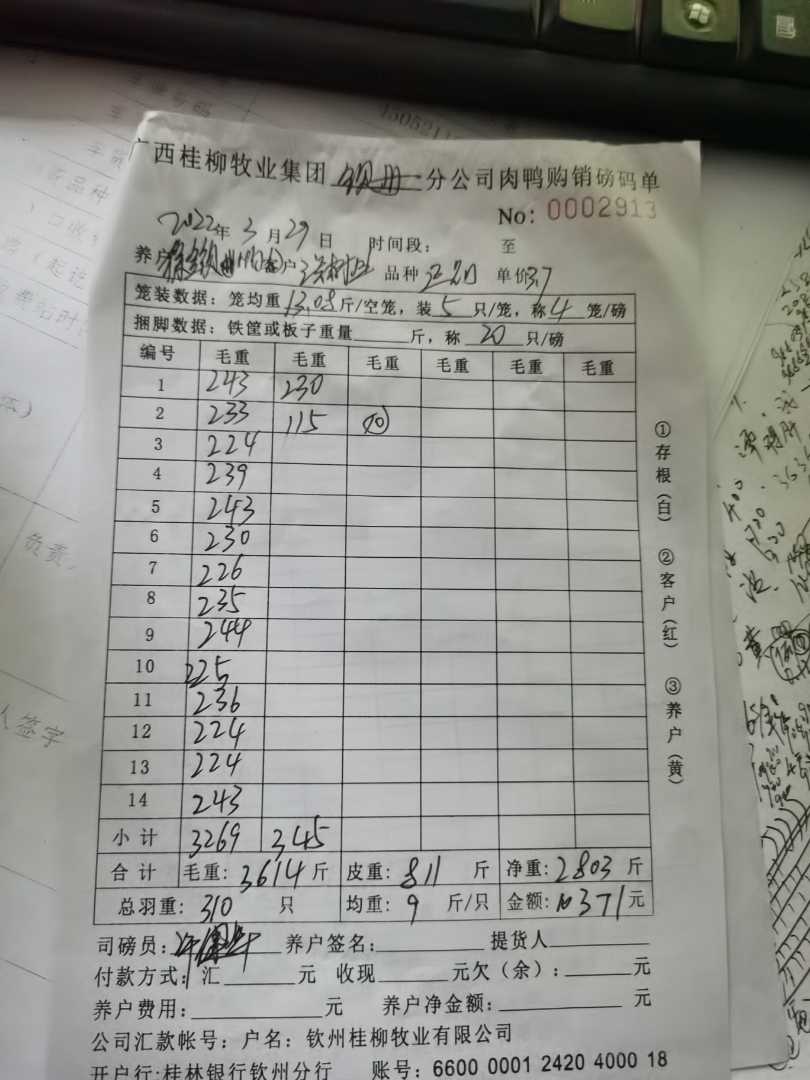 广西桂柳牧业集团 钦州 分公司肉鸭购销磅码单
No: 0002913
2022年 3月 29日 时间段: 至
养户 客户 品种 单价3.7
笼装数据: 笼均重 13.08 斤/空笼, 装 5 只/笼, 称 4 笼/磅
捆脚数据: 铁筐或板子重量 斤, 称 20 只/磅
编号 毛重 毛重 毛重 毛重 毛重 毛重
1 243 230
2 233 115 (10)
3 224
4 239
5 243
6 230
7 226
8 235
9 244
10 225
11 236
12 224
13 224
14 243
小计 3269 345
合计 毛重: 3614 斤 皮重: 811 斤 净重: 2803 斤
总羽重: 310 只 均重: 9 斤/只 金额: 10371 元
司磅员: 养户签名: 提货人
付款方式: 汇 元 收现 元欠(余): 元
养户费用: 元 养户净金额: 元
公司汇款帐号: 户名: 钦州桂柳牧业有限公司
开户行:桂林银行钦州分行 账号: 6600 0001 2420 4000 18
①存根(白) ②客户(红) ③养户(黄)
负责
人签字